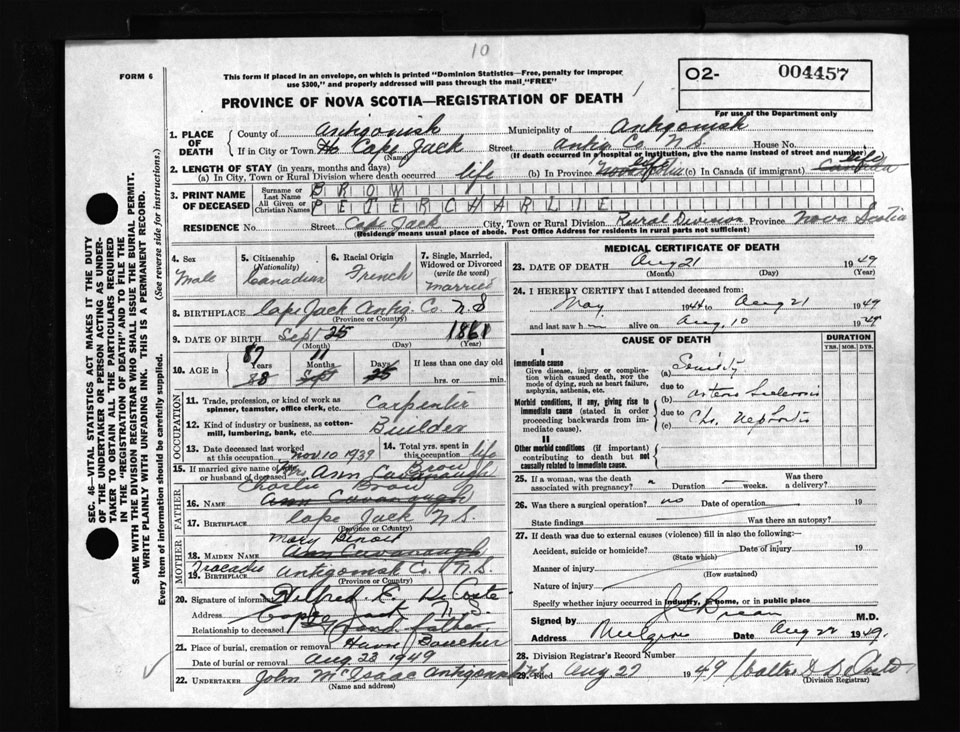 10
FORM 6
This form if placed in an envelope, on which is printed "Dominion Statistics—Free, penalty for improper
use $300," and properly addressed will pass through the mail "FREE"
O2- 004457
For use of the Department only
PROVINCE OF NOVA SCOTIA—REGISTRATION OF DEATH
SEC. 46—VITAL STATISTICS ACT MAKES IT THE DUTY
OF THE UNDERTAKER OR PERSON ACTING AS UNDER-
TAKER TO OBTAIN ALL THE PARTICULARS REQUIRED
IN THE "REGISTRATION OF DEATH" AND TO FILE THE
SAME WITH THE DIVISION REGISTRAR WHO SHALL ISSUE THE BURIAL PERMIT.
WRITE PLAINLY WITH UNFADING INK. THIS IS A PERMANENT RECORD.
Every item of information should be carefully supplied. (See reverse side for instructions.)
1. PLACE OF DEATH
County of Antigonish Municipality of Antigonish
If in City or Town Cape Jack Street Antig. Co. N.S. House No.
(Name) (If death occurred in a hospital or institution, give the name instead of street and number)
2. LENGTH OF STAY (in years, months and days)
(a) In City, Town or Rural Division where death occurred life (b) In Province life Nova Scotia (c) In Canada (if immigrant) life Canada
3. PRINT NAME OF DECEASED
Surname or Last Name BROW
All Given or Christian Names PETER CHARLIE
RESIDENCE No. Street Cape Jack City, Town or Rural Division Rural Division Province Nova Scotia
(Residence means usual place of abode. Post Office Address for residents in rural parts not sufficient)
4. Sex Male
5. Citizenship (Nationality) Canadian
6. Racial Origin French
7. Single, Married, Widowed or Divorced (write the word) Married
8. BIRTHPLACE Cape Jack Antig. Co. N.S
(Province or Country)
9. DATE OF BIRTH Sept 25 1861
(Month) (Day) (Year)
10. AGE in 87 Years 11 Months Days If less than one day old
88 Sept 25 hrs. or min.
OCCUPATION
11. Trade, profession, or kind of work as spinner, teamster, office clerk, etc. Carpenter
12. Kind of industry or business, as cotton-mill, lumbering, bank, etc. Builder
13. Date deceased last worked at this occupation Nov. 10 1939
14. Total yrs. spent in this occupation life
15. If married give name of wife or husband of deceased Ann Cavanaugh Brow
FATHER
16. Name Charlie Brow
Ann Cavanaugh
17. BIRTHPLACE Cape Jack N.S.
(Province or Country)
MOTHER
18. MAIDEN NAME Mary Benoit
Ann Cavanaugh
19. BIRTHPLACE Tracadie Antigonish Co. N.S.
(Province or Country)
20. Signature of informant Wilfred E. DeCoste
Address Cape Jack N.S.
Relationship to deceased Grand father
21. Place of burial, cremation or removal Havre Boucher
Date of burial or removal Aug 23 1949
22. UNDERTAKER John McIsaac Antigonish
(Name and address)
MEDICAL CERTIFICATE OF DEATH
23. DATE OF DEATH Aug 21 1949
(Month) (Day) (Year)
24. I HEREBY CERTIFY that I attended deceased from:
May 1944 to Aug 21 1949
and last saw him alive on Aug. 10 1949
CAUSE OF DEATH
DURATION
YRS. MOS. DYS.
I
Immediate cause
Give disease, injury or complication which caused death, not the mode of dying, such as heart failure, asphyxia, asthenia, etc.
(a) Senility
due to
(b) arterio Sclerosis
Morbid conditions, if any, giving rise to immediate cause (stated in order proceeding backwards from immediate cause).
due to
(c) Chr. Nephritis
II
Other morbid conditions (if important) contributing to death but not causally related to immediate cause.
25. If a woman, was the death associated with pregnancy? Duration weeks. Was there a delivery?
26. Was there a surgical operation? no Date of operation 19
State findings Was there an autopsy?
27. If death was due to external causes (violence) fill in also the following:—
Accident, suicide or homicide? Date of injury 19
(State which)
Manner of injury
(How sustained)
Nature of injury
Specify whether injury occurred in industry, in home, or in public place
Signed by M.D.
Address Mulgrave Date Aug 22 1949.
28. Division Registrar's Record Number
29. Filed Aug 27 1949 Walter DeCoste
(Division Registrar)